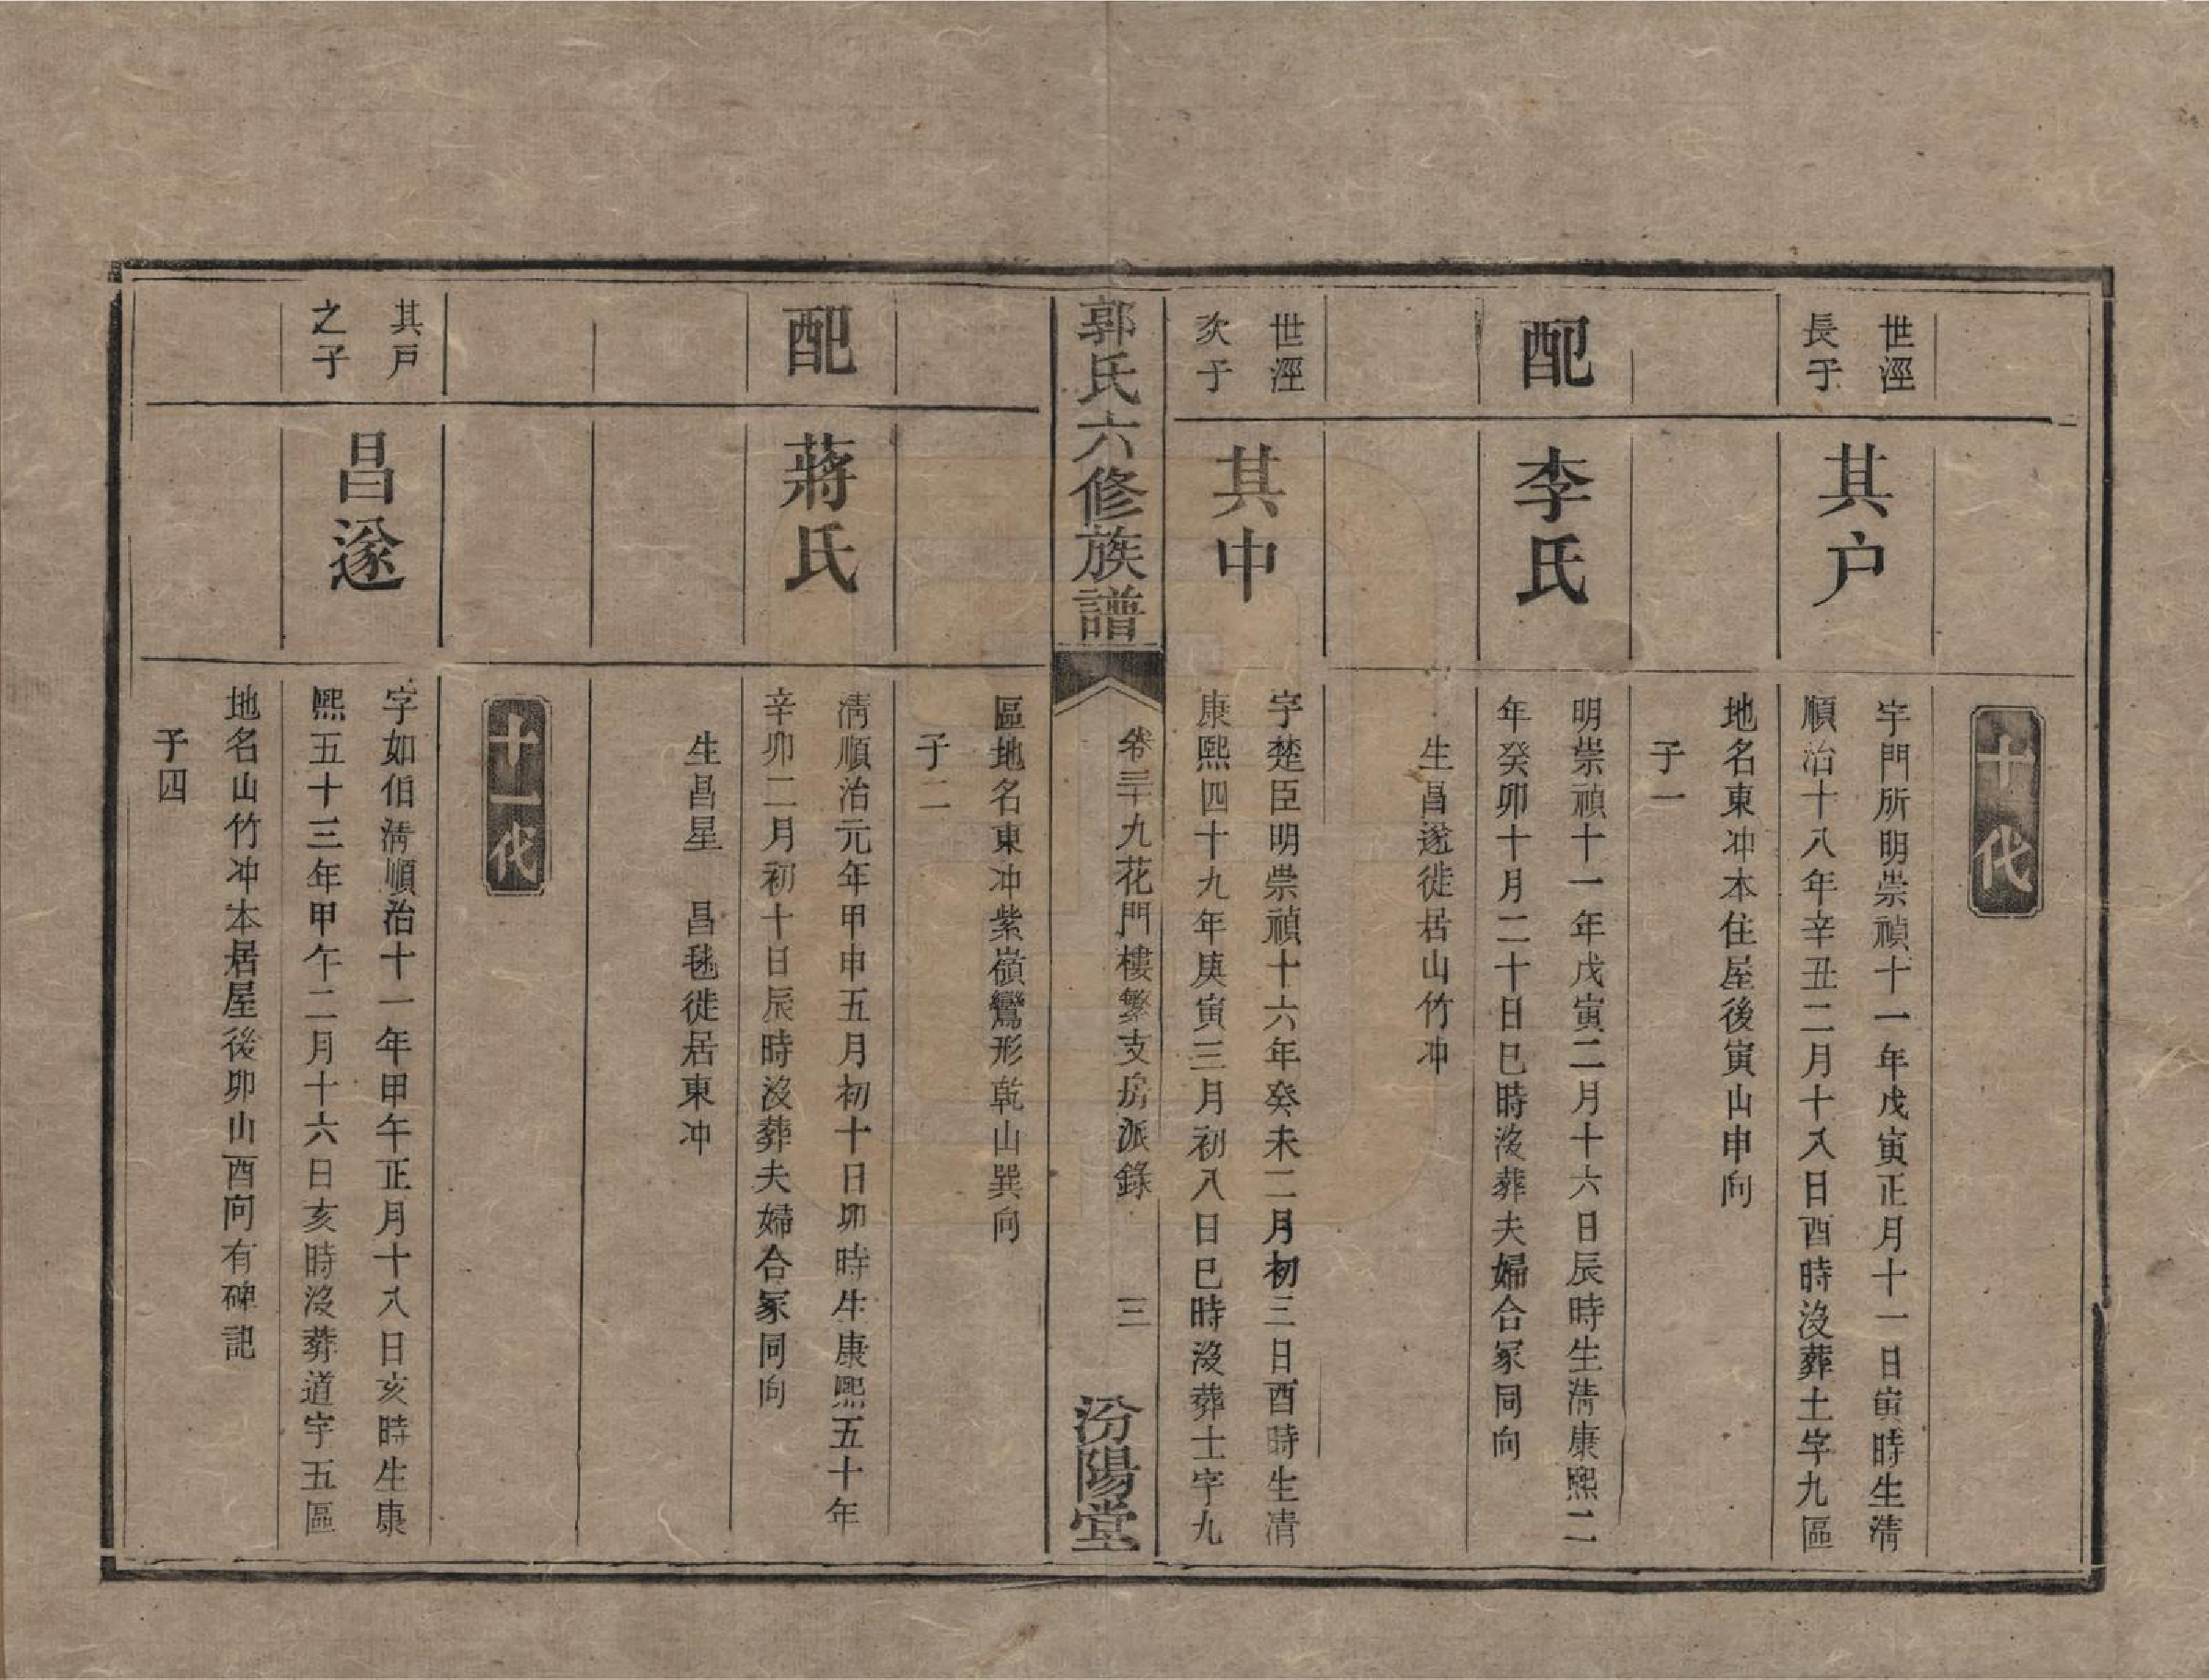 十代
世涇
長子
其户
字門所明崇禎十一年戊寅正月十一日寅時生清
順治十八年辛丑二月十八日酉時没葬土字九區
地名東冲本住屋後寅山申向
子一
配
李氏
明崇禎十一年戊寅二月十六日辰時生清康熙二
年癸卯十月二十日巳時没葬夫婦合冢同向
生昌遂徙居山竹冲
世涇
次子
其中
字楚臣明崇禎十六年癸未二月初三日酉時生清
康熙四十九年庚寅三月初八日巳時没葬士字九
郭氏六修族譜
卷三十九花門樓繁支房派錄
三
汾陽堂
區地名東冲紫嶺鸞形乾山巽向
子二
配
蔣氏
清順治元年甲申五月初十日卯時生康熙五十年
辛卯二月初十日辰時没葬夫婦合冢同向
生昌星　昌毬徙居東冲
十一代
其戸
之子
昌遂
字如伯清順治十一年甲午正月十八日亥時生康
熙五十三年甲午二月十六日亥時没葬道字五區
地名山竹冲本居屋後卯山酉向有碑記
子四